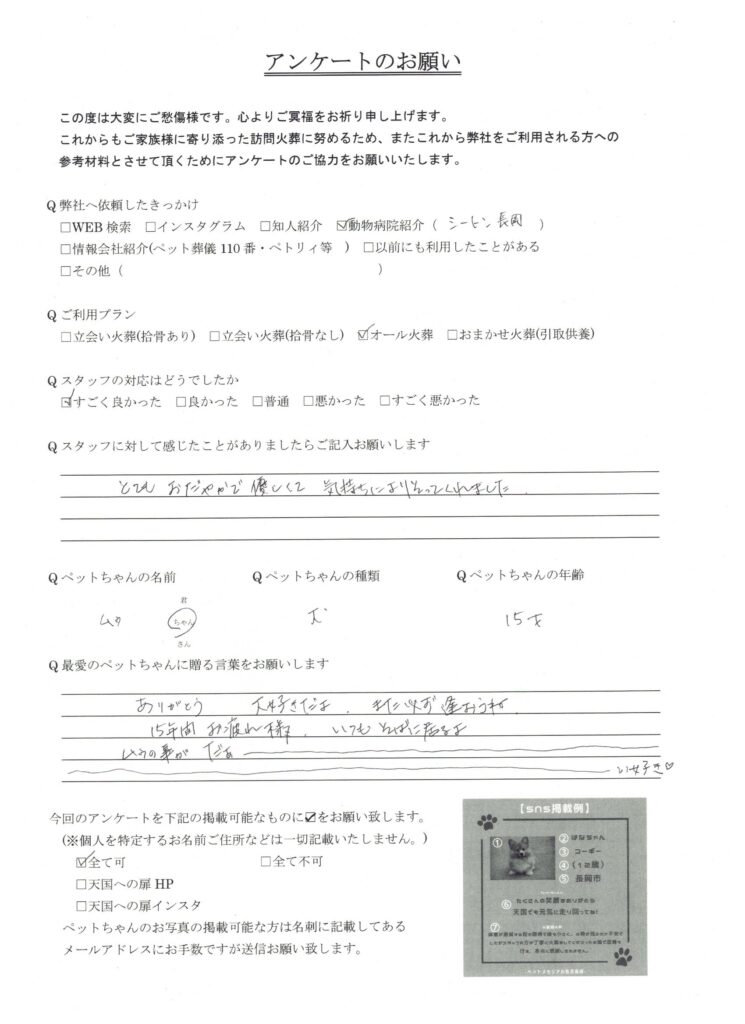 アンケートのお願い
この度は大変にご愁傷様です。心よりご冥福をお祈り申し上げます。
これからもご家族様に寄り添った訪問火葬に努めるため、またこれから弊社をご利用される方への
参考材料とさせて頂くためにアンケートのご協力をお願いいたします。
Q 弊社へ依頼したきっかけ
□WEB 検索 □インスタグラム □知人紹介 ☑動物病院紹介（ 長岡 ）
□情報会社紹介(ペット葬儀 110 番・ペトリィ等 ) □以前にも利用したことがある
□その他（ ）
Q ご利用プラン
□立会い火葬(拾骨あり) □立会い火葬(拾骨なし) ☑オール火葬 □おまかせ火葬(引取供養)
Q スタッフの対応はどうでしたか
☑すごく良かった □良かった □普通 □悪かった □すごく悪かった
Q スタッフに対して感じたことがありましたらご記入お願いします
とても おだやかで 優しくて 気持ちによりそってくれました.
Q ペットちゃんの名前 Q ペットちゃんの種類 Q ペットちゃんの年齢
君
ちゃん 犬 15才
さん
Q 最愛のペットちゃんに贈る言葉をお願いします
ありがとう 大好きだよ. また必ず逢おうね
15年間 お疲れ様. いつも そばに居るよ
の事が だぁ
い好き♡
今回のアンケートを下記の掲載可能なものに☑をお願い致します。
(※個人を特定するお名前ご住所などは一切記載いたしません。)
☑全て可 □全て不可
□天国への扉 HP
□天国への扉インスタ
ペットちゃんのお写真の掲載可能な方は名刺に記載してある
メールアドレスにお手数ですが送信お願い致します。
【sns掲載例】
① ② はなちゃん
③ コーギー
④ （12歳）
⑤ 長岡市
⑥ たくさんの笑顔をありがとう
天国でも元気に走り回ってね！
⑦